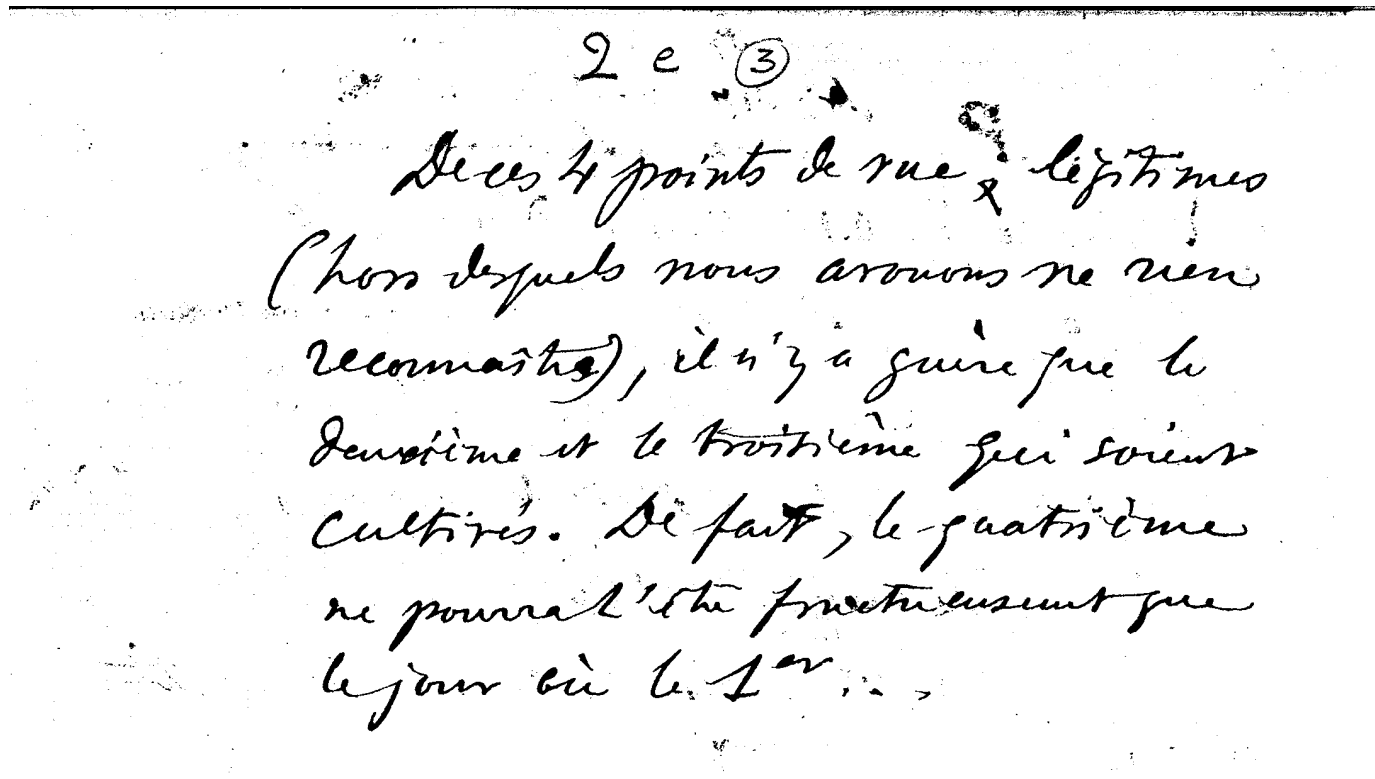 2 e ③
De ces 4 points de vue, légitimes
(hors desquels nous avouons ne rien
reconnaître), il n'y a guère que le
deuxième et le troisième qui soient
cultivés. De fait, le quatrième
ne pourra l'être fructueusement que
le jour où le 1er ...